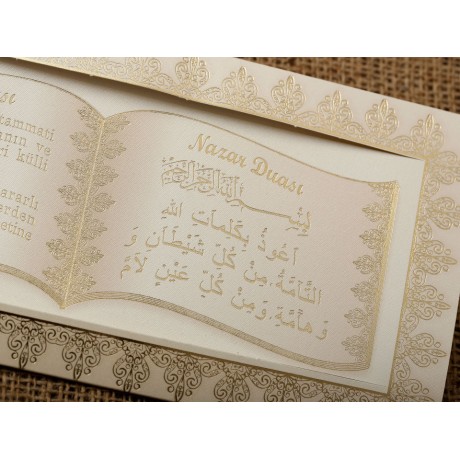 tammati
anın ve
küllî
ararlı
erden
etine
Nazar Duası
بِسْمِ اللهِ الرَّحْمٰنِ الرَّحِيمِ
اَعُوذُ بِكَلِمَاتِ اللهِ
التَّامَّةِ مِنْ كُلِّ شَيْطَانٍ وَ
وَهَامَّةٍ وَمِنْ كُلِّ عَيْنٍ لَامَّ